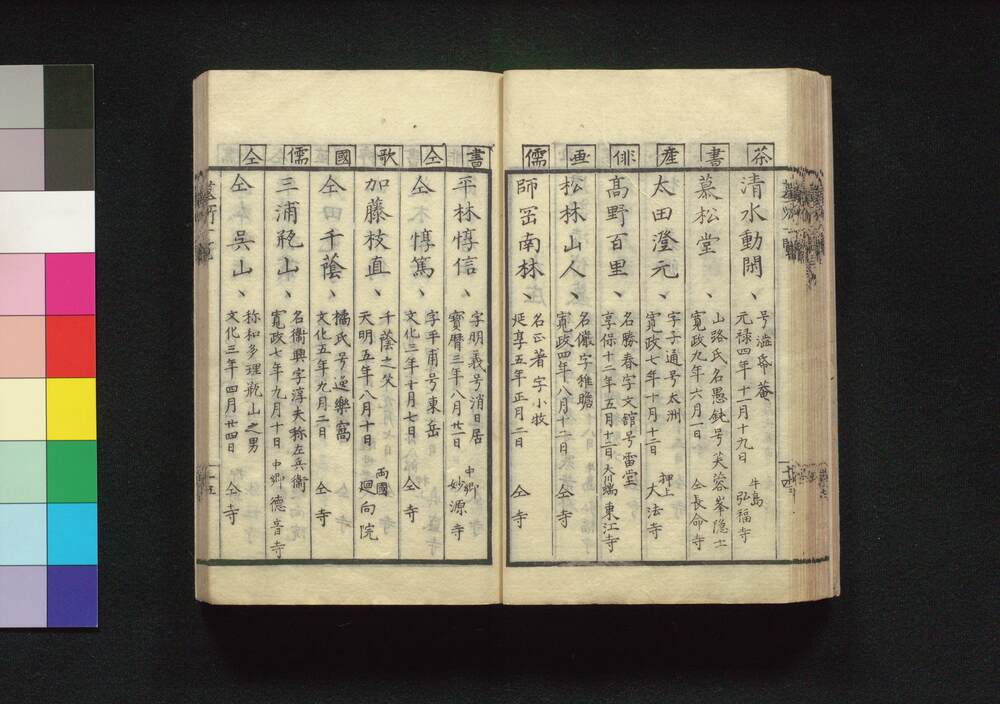 茶
清水動閑、
号溢〻菴
元禄四年十一月十九日
牛島
弘福寺
書
慕松堂、
山路氏名愚鈍号芙蓉峯隠士
寛政九年六月一日
仝長命寺
産
太田澄元、
字子通号大洲
寛政七年十月十二日
押上
大法寺
俳
髙野百里、
名勝春字文館号雷堂
享保十二年五月十二日
大川端
東江寺
画
松林山人、
名儼字雅瞻
寛政四年八月十二日
仝寺
儒
師岡南林、
名正著字小牧
延享五年正月二日
仝寺
書
平林惇信、
字明義号消日居
寳暦三年八月廿一日
中郷
妙源寺
仝
仝惇篤、
字平甫号東岳
文化三年十月七日
仝寺
歌
加藤枝直、
千䕃之父
天明五年八月十日
両國
廻向院
國
仝千䕃、
橘氏号逸樂窩
文化五年九月二日
仝寺
儒
三浦瓶山、
名衞興字淳夫称左兵衞
寛政七年九月十日
中郷
徳音寺
仝
仝呉山、
称和多理瓶山之男
文化三年四月廿四日
仝寺